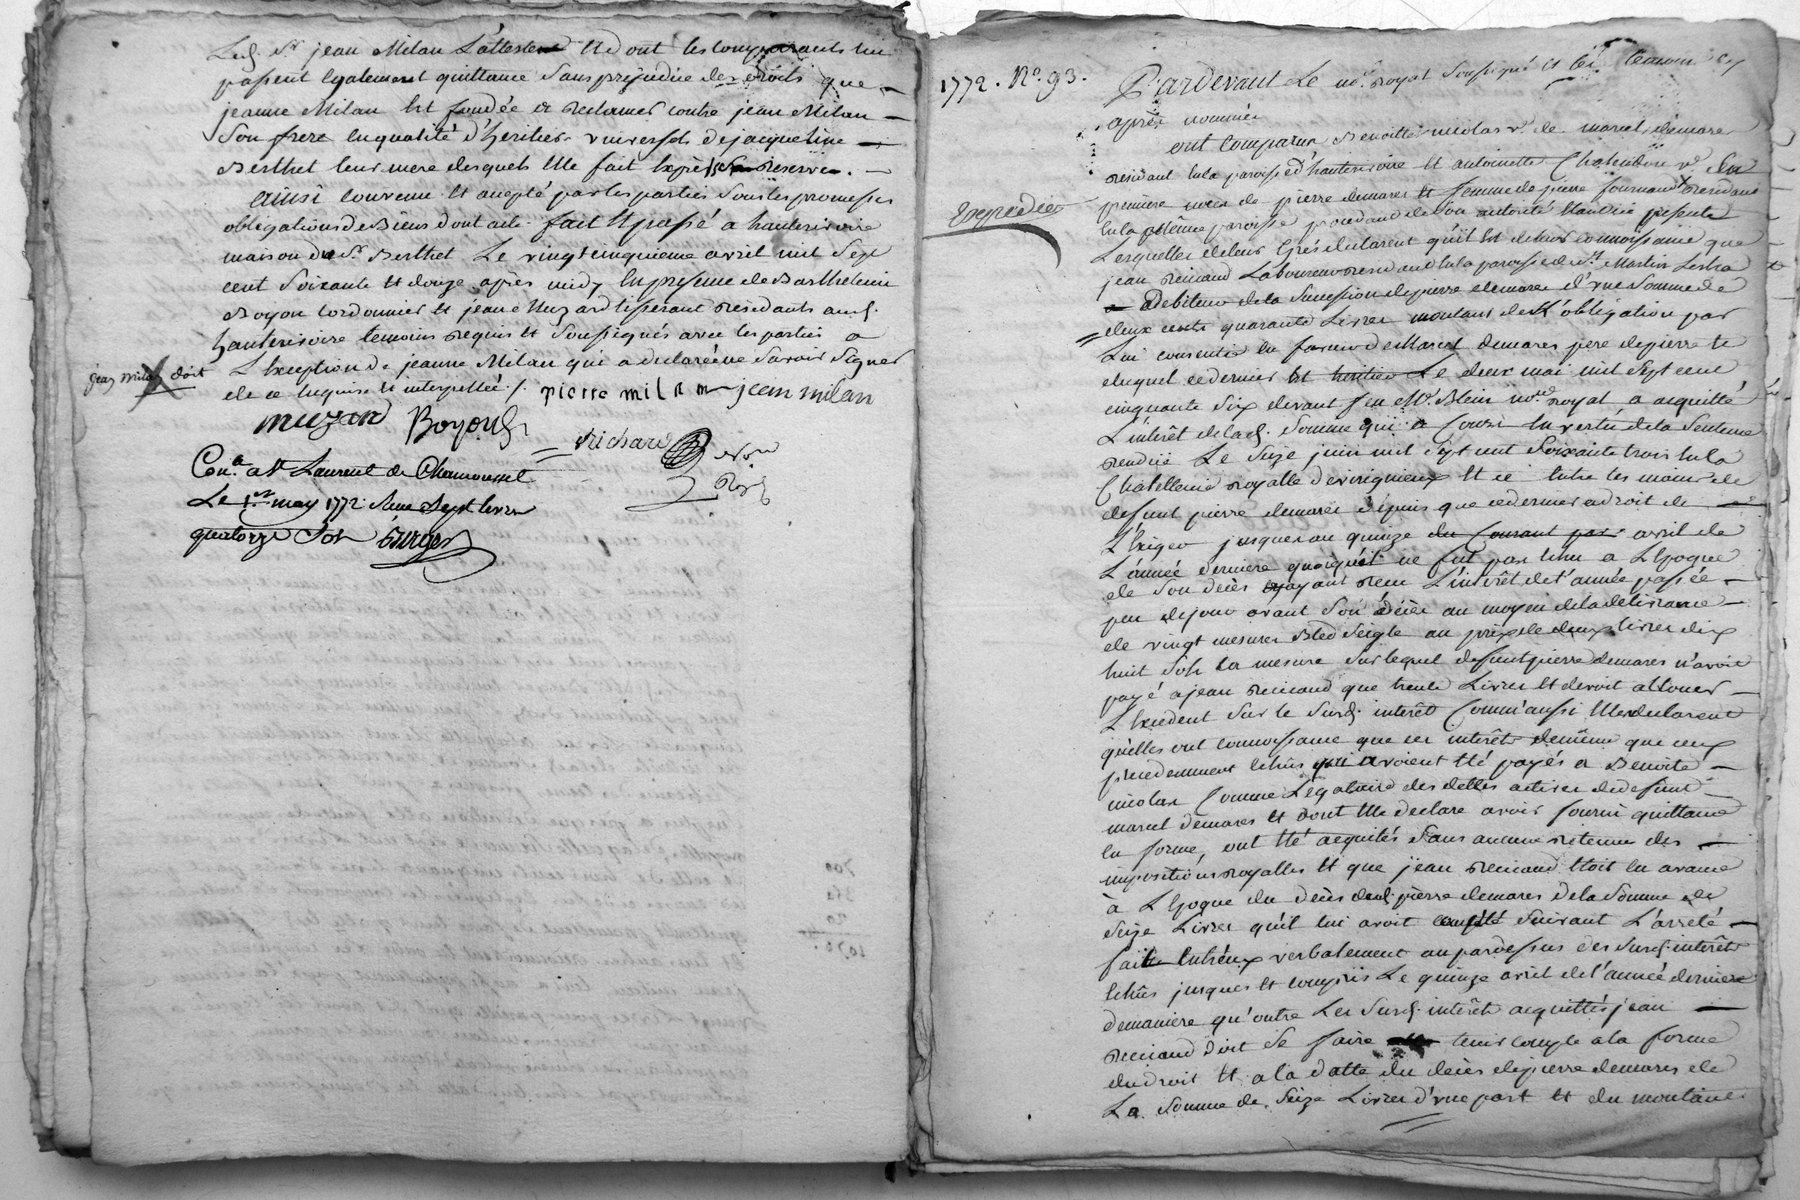 Led. Sr jean Milan L'atteste Et dont les comparants lui
passent Egalement quittance Sans prejudice des droits que
jeanne Milan Est fondée a reclamer contre jean Milan
Son frere En qualité d'heritier universel de jacqueline
Berthet leur mere desquels Elle fait Expresse reserve.
ainsi convenu Et accepté par les parties Sous les promesses
obligations de Biens dont acte. fait Et passé a hauterivoire
maison du Sr Berthet Le vingt cinquieme avril mil Sept
cent Soixante Et douze après midy En presence de Barthelemi
Boyon cordonnier Et jean Muzard tisserant residants aud.
hauterivoire temoins requis Et Soussignés avec les parties a
L'Exception de jeanne Milan qui a declaré ne Savoir Signer
de ce Enquise Et interpellée /.
jean milan doit
pierre milan jean milan
muzard Boyond
Richard
Con.é a St Laurent de Chamousset
Le 1er may 1772. Reçu Sept livres
quatorze Sols
1772. No. 93.
Expediée
Pardevant Le no.re royal Soussigné et les temoins cy
après nommés
ont comparu Benoitte nicolas ve. de marcel demares
residant En la paroisse d'hauterivoire Et antoinette ve. En
premiere noces de pierre demares Et femme de pierre residant
En la même paroisse procedant de Son autorité
Lesquelles de leur gré declarent qu'il Est de leur connoissance que
jean Reinaud Laboureur residant En la paroisse de St. Martin Lestra
Debiteur de la Succession de pierre demares d'une Somme de
deux cents quarante Livres montant de L'obligation par
Lui consentie En faveur de Marcel demares pere de pierre Et
duquel ce dernier Est heritier Le deux mai mil Sept cent
cinquante Six devant feu Me. Blein no.re royal a acquitté
L'intérêt de lad. Somme qui a Couru En vertu de la Sentence
rendue Le Seize juin mil Sept cent Soixante trois En la
Chatellenie royalle Et ce Entre les mains de
defunt pierre demares depuis que ce dernier a droit de
L'Exiger jusques au quinze du Courant par avril de
L'année derniere quoiqu'il ne fut pas Echu a L'Epoque
de Son decès ayant reçu L'intérêt de l'année passée
peu de jour avant Son décès au moyen de la delivrance
de vingt mesures Bled Seigle au prix de deux livres dix
huit Sols la mesure Sur lequel defunt pierre demares n'avoit
payé a jean Reinaud que trente Livres Et devoit allouer
L'Excedent Sur le Susd. intérêt Comm'aussi Elles declarent
qu'elles ont connoissance que ces intérêts de même que ceux
precedemment Echus qui avoient Eté payés a Benoite
nicolas Comme Légataire des dettes actives de defunt
marcel demares Et dont Elle declare avoir fourni quittance
En forme, ont Eté acquités Sans aucune retenue des
impositions royalles Et que jean Reinaud Etoit En avance
à L'Epoque du decès dud. pierre demares de la Somme de
Seize Livres qu'il lui avoit compté Suivant L'arreté
fait Entr'eux verbalement au pardessus des Susd. intérêts
Echûs jusques Et compris Le quinze avril de l'année derniere
de maniere qu'outre Les Susd. intérêts acquittés jean
Reinaud doit Se faire tenir compte a la forme
du droit Et a la datte du decès de pierre demares de
La Somme de Seize Livres d'une part Et du montant